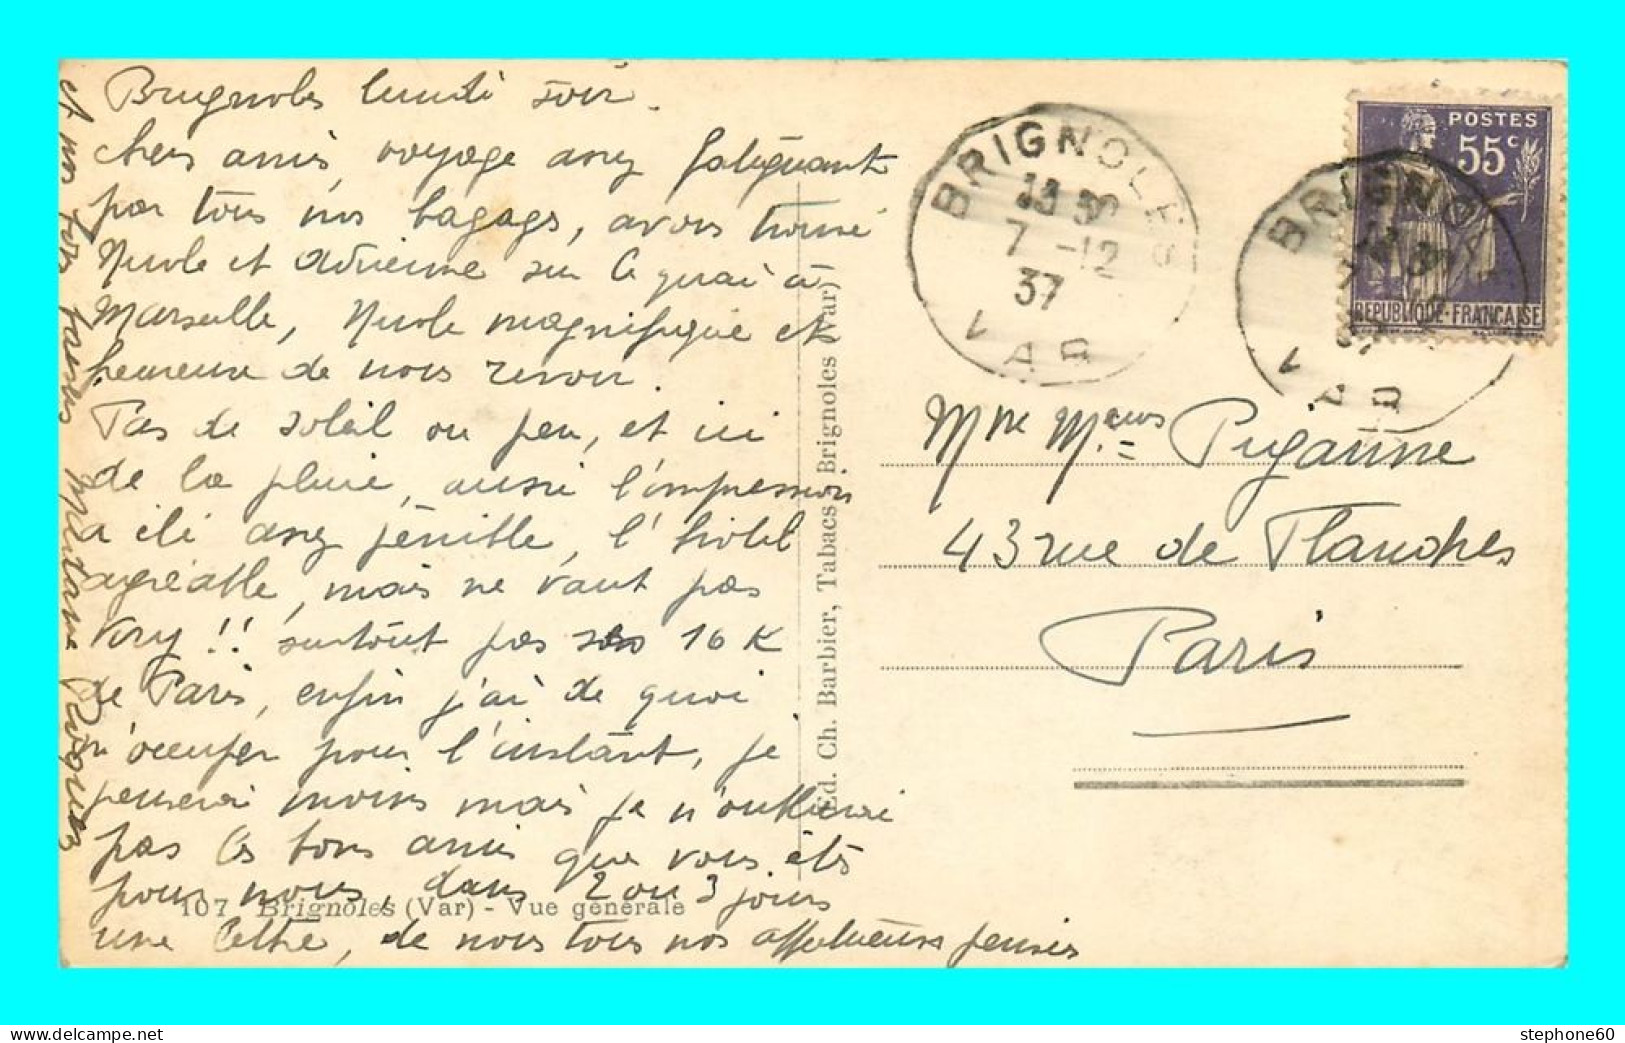 Brignoles lundi soir.
chers amis, voyage assez fatiguant
par tous nos bagages, avons trouvé
Nicole et Adrienne sur le quai à
Marseille, Nicole magnifique et
heureuse de nous revoir.
Pas de soleil ou peu, et ici
de la pluie, aussi l'impression
a été assez pénible, l'hotel
agréable, mais ne vaut pas
!! surtout pas 16 K
de Paris, enfin j'ai de quoi
m'occuper pour l'instant, je
penserai moins mais je n'oublierai
pas les bons amis que vous êtes
pour nous, dans 2 ou 3 jours
une lettre, de nous tous nos affectueuses pensées
107 Brignoles (Var) - Vue générale
Ed. Ch. Barbier, Tabacs Brignoles (Var)
BRIGNOLES
7 -12
37
VAR
POSTES
55c
REPUBLIQUE·FRANCAISE
BRIGNO
VAR
43 rue de Flandres
Paris
stephone60